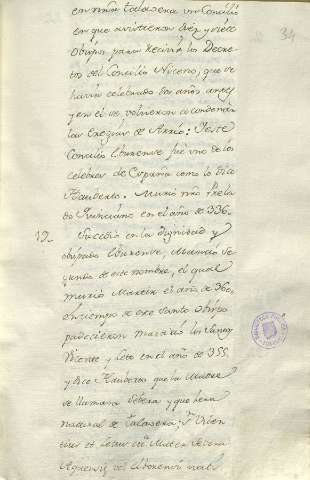 en ntra talavera un Concilio
en que asistieron diez y siete
obispos para recivir los Decre-
tos del Concilio Niceno, que se
havia celebrado dos años antes
y en el se volvieron a condenar
las eregias de Arrio: Y este
Concilio Eborense fue uno de los
celebres de España como lo dice
Hauberto. Murio ntro Prela-
do Quinciano en el año de 336.
12. Sucedio en la dignidad y
obispado Eborense, Mancio se-
gundo de este nombre, el qual
murio Martir el año de 36
en tiempo de este Santo obispo
padecieron martirio los Santos
Vicente y Leto en el año de 355
y dice Hauberto que la Madre
se llamava Severa y que hera
natural de Talavera: Sn Vicen
tius et Letus Mater Severa
del Eborensi
34